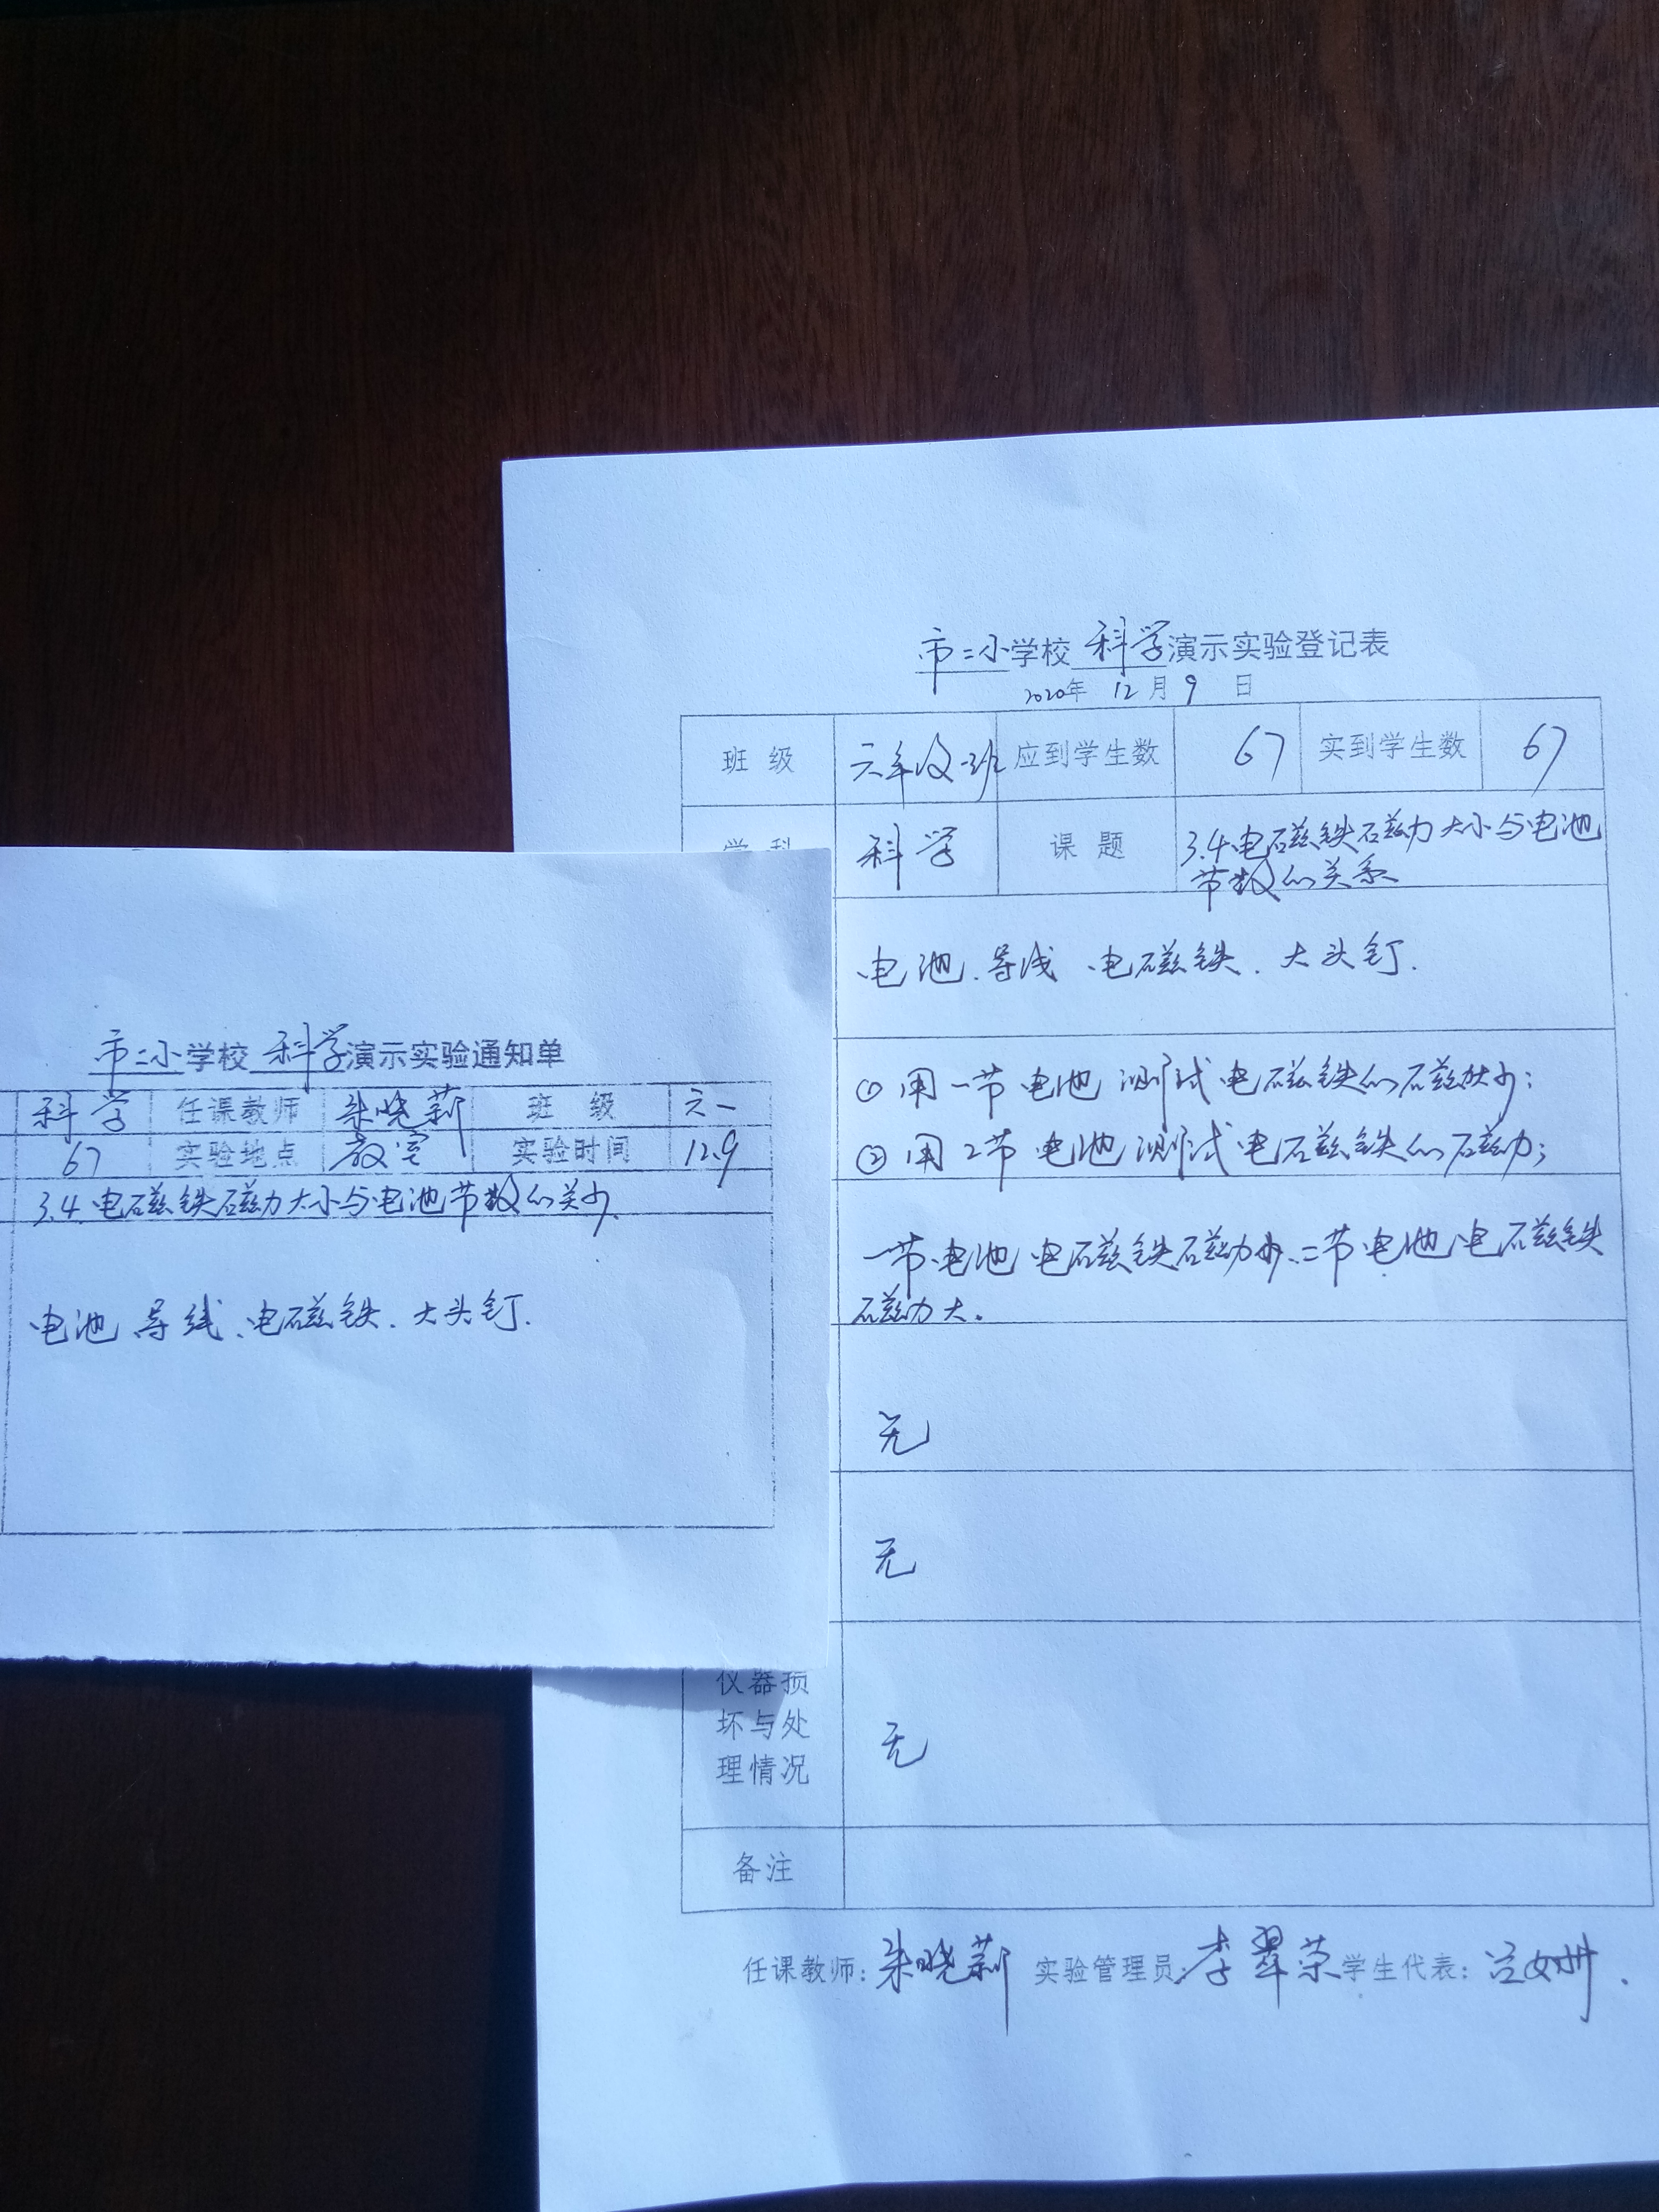 市二小学校 科学演示实验登记表
2020年 12 月 9 日
班 级 六年级一班 应到学生数 67 实到学生数 67
学 科 科学 课 题 3.4电磁铁磁力大小与电池
节数的关系
电池、导线、电磁铁、大头钉.
① 用一节电池测试电磁铁的磁力大小;
② 用2节电池测试电磁铁的磁力;
一节电池电磁铁磁力小、二节电池电磁铁
磁力大。
无
无
仪器损
坏与处
理情况
无
备注
任课教师: 朱晓莉 实验管理员: 李翠荣 学生代表:
市二小学校 科学演示实验通知单
科学 任课教师 朱晓莉 班 级 六一
67 实验地点 教室 实验时间 12.9
3.4.电磁铁磁力大小与电池节数的关
电池、导线、电磁铁、大头钉.